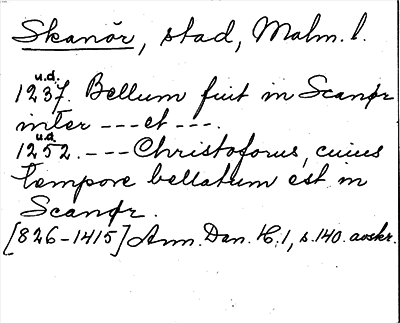 Skanör, stad, Malm. l.
u.d.
1237. Bellum fuit in Scanør
inter --- et ---.
u.d.
1252. --- Christoforus, cuius
tempore bellatum est in
Scanør.
[826-1415] Ann. Dan. H:1, s. 140. avskr.